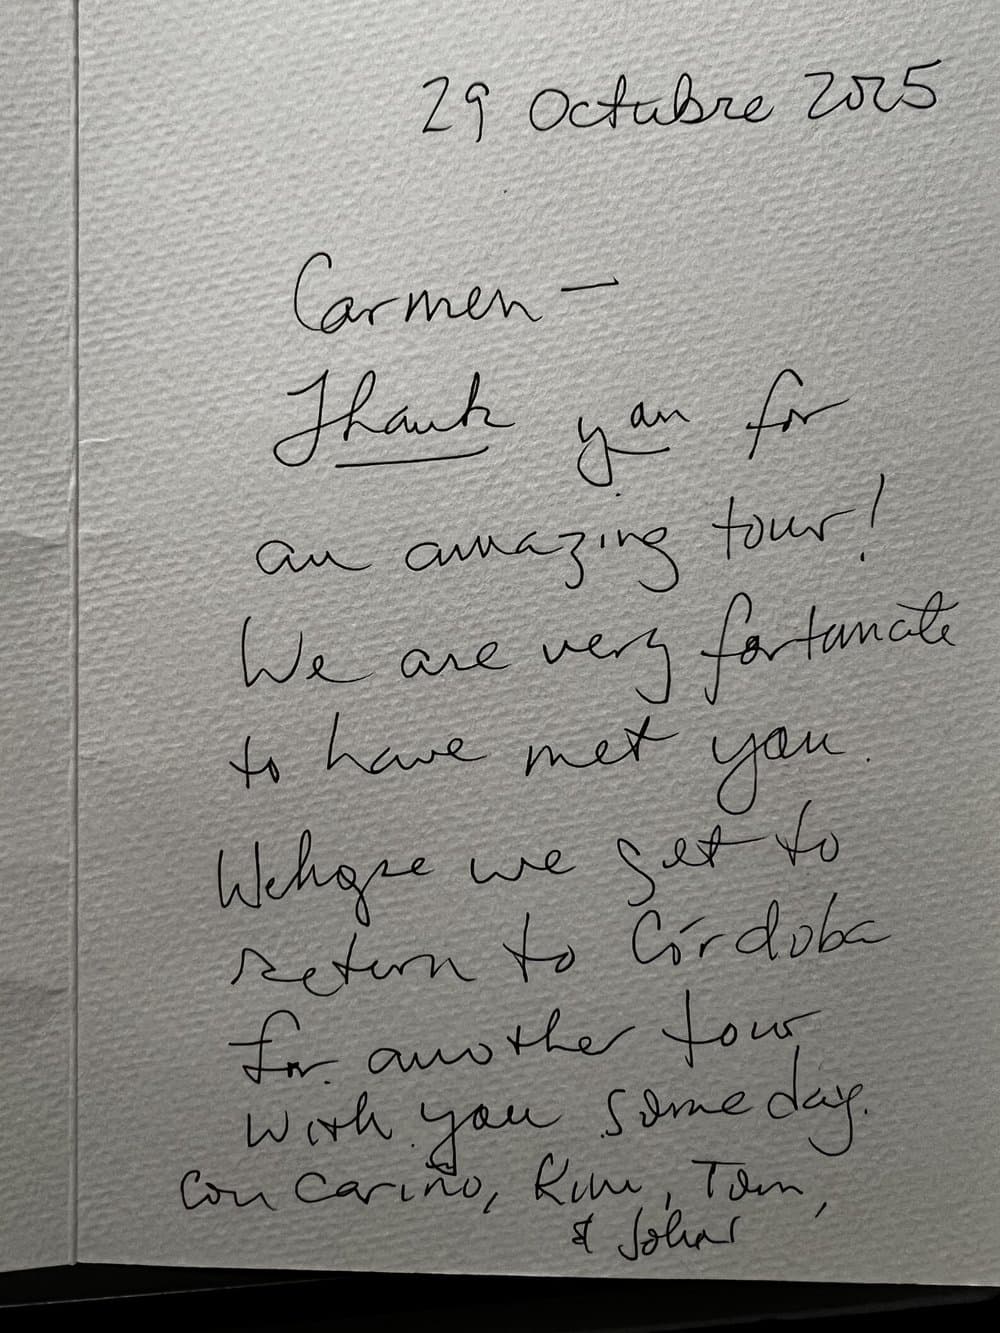 29 Octubre 2025
Carmen —
Thank you for
an amazing tour!
We are very fortunate
to have met you.
We hope we get to
return to Córdoba
for another tour
with you someday.
Con cariño, Kim, Tom,
&